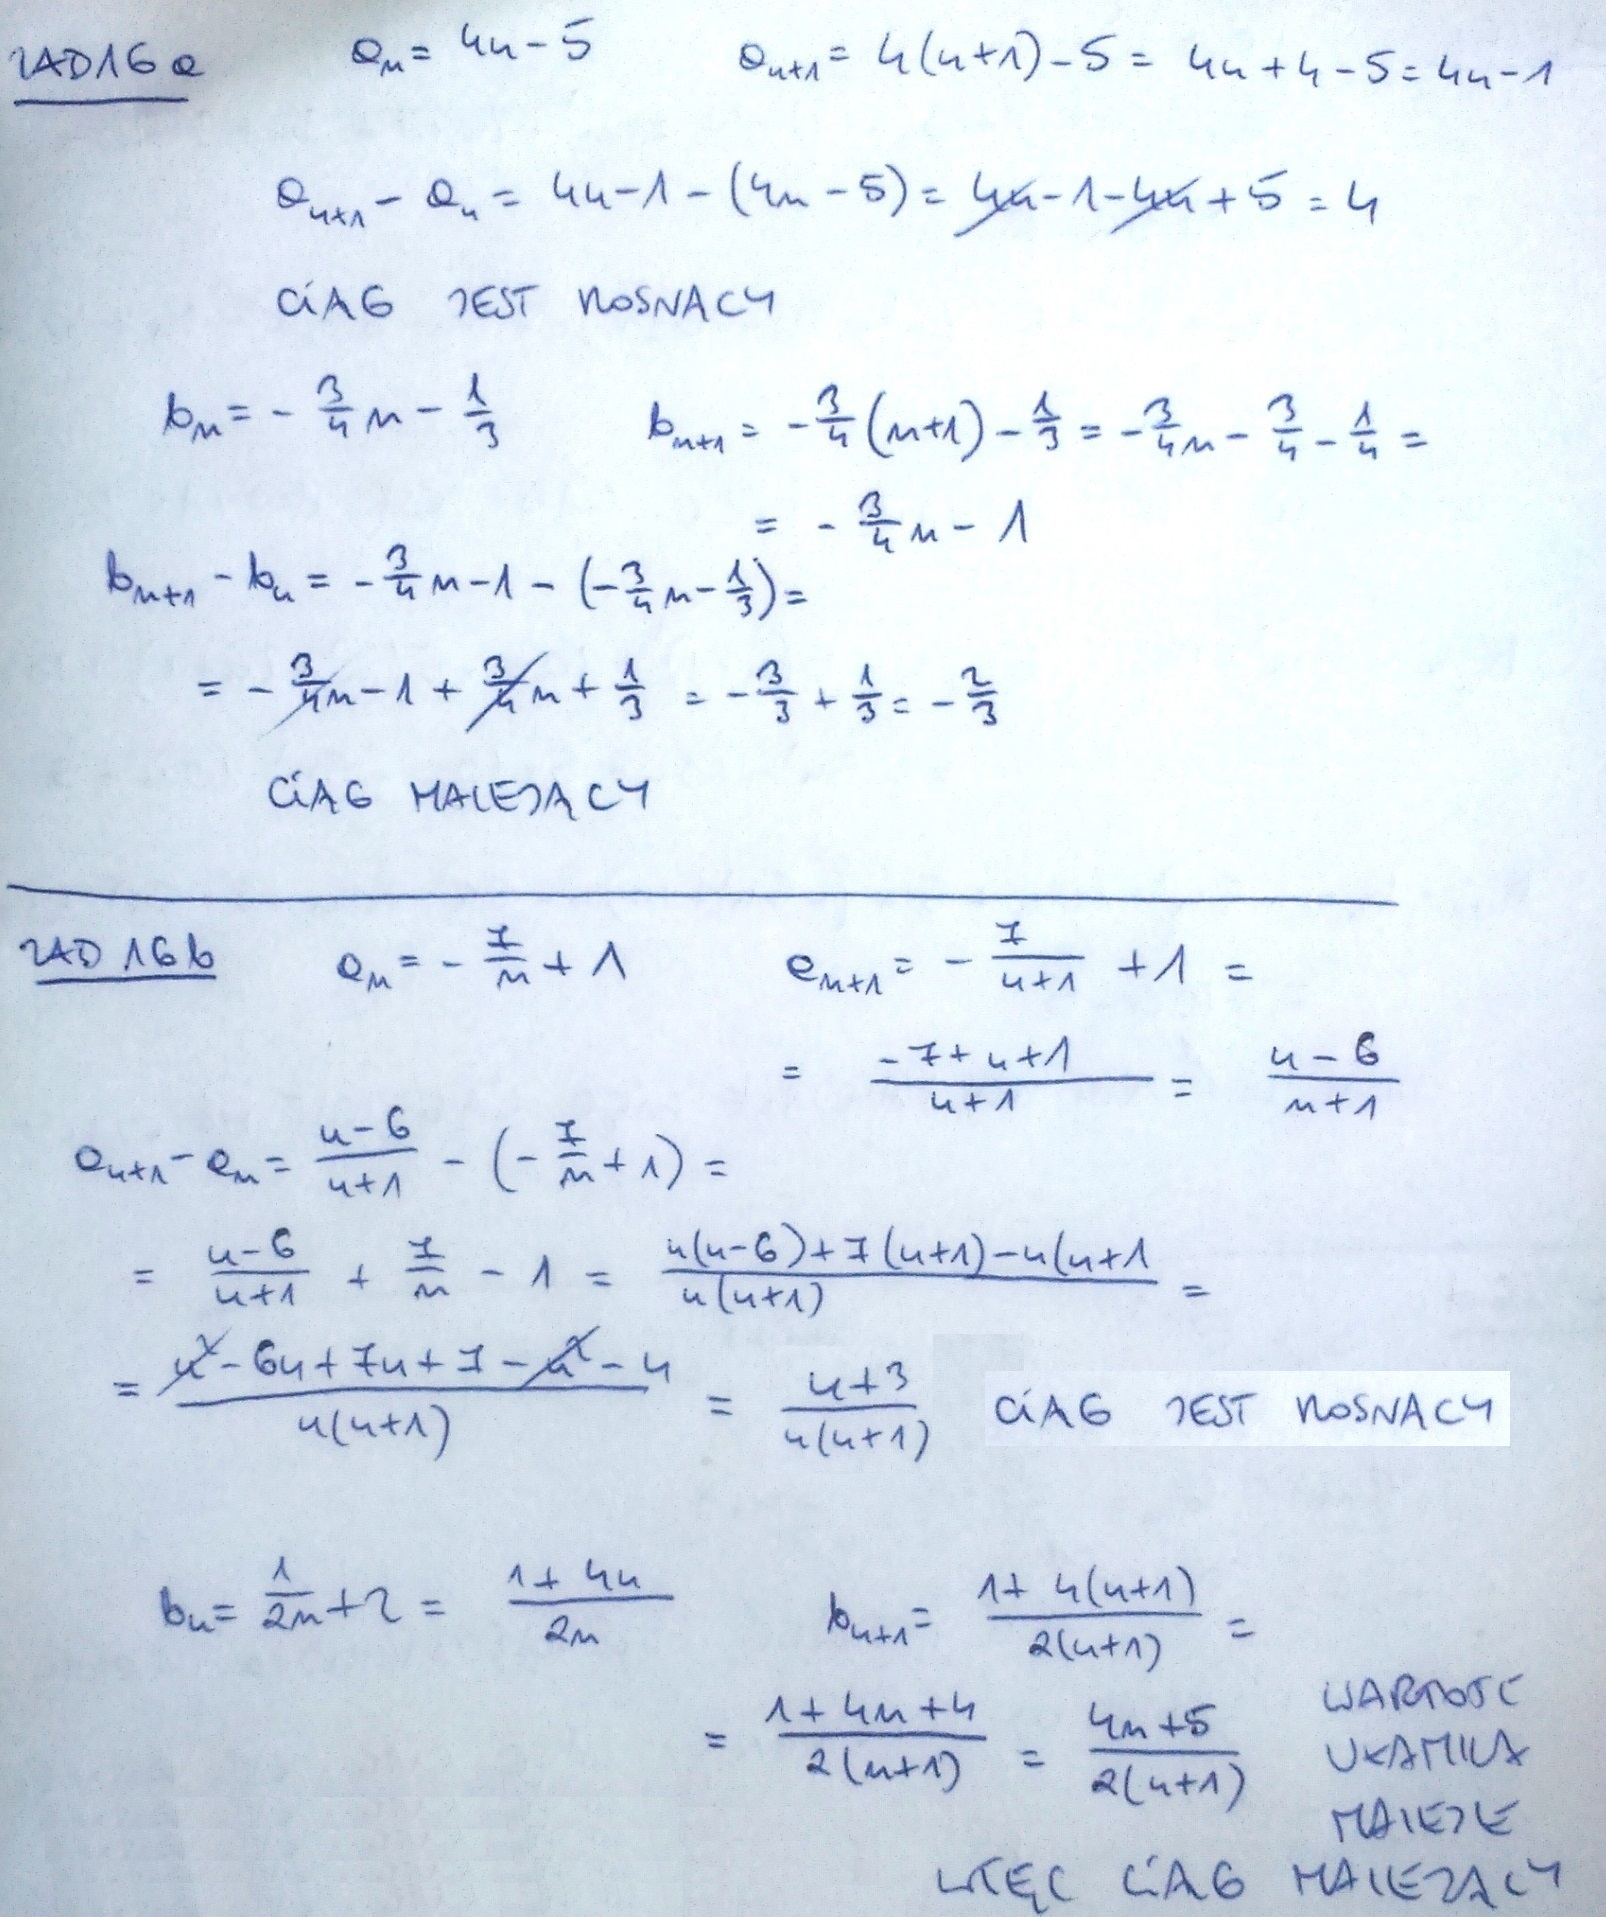 ZAD 16 a a_n = 4n - 5 a_{n+1} = 4(n+1) - 5 = 4n + 4 - 5 = 4n - 1
a_{n+1} - a_n = 4n - 1 - (4n - 5) = 4n - 1 - 4n + 5 = 4
CIAG JEST ROSNACY
b_n = - 3/4 n - 1/3 b_{n+1} = - 3/4 (n+1) - 1/3 = - 3/4 n - 3/4 - 1/4 =
= - 3/4 n - 1
b_{n+1} - b_n = - 3/4 n - 1 - (- 3/4 n - 1/3) =
= - 3/4 n - 1 + 3/4 n + 1/3 = - 3/3 + 1/3 = - 2/3
CIAG MALEJĄCY
ZAD 16 b a_n = - 7/n + 1 a_{n+1} = - 7/(n+1) + 1 =
= (-7 + n + 1)/(n+1) = (n - 6)/(n+1)
a_{n+1} - a_n = (n - 6)/(n+1) - (- 7/n + 1) =
= (n - 6)/(n+1) + 7/n - 1 = (n(n-6) + 7(n+1) - n(n+1)/(n(n+1)) =
= (n² - 6n + 7n + 7 - n² - 4)/(n(n+1)) = (n+3)/(n(n+1)) CIAG JEST ROSNACY
b_n = 1/(2n) + 2 = (1 + 4n)/(2n) b_{n+1} = (1 + 4(n+1))/(2(n+1)) =
= (1 + 4n + 4)/(2(n+1)) = (4n + 5)/(2(n+1)) WARTOŚĆ
UŁAMKA
MALEJE
WIĘC CIAG MALEJACY